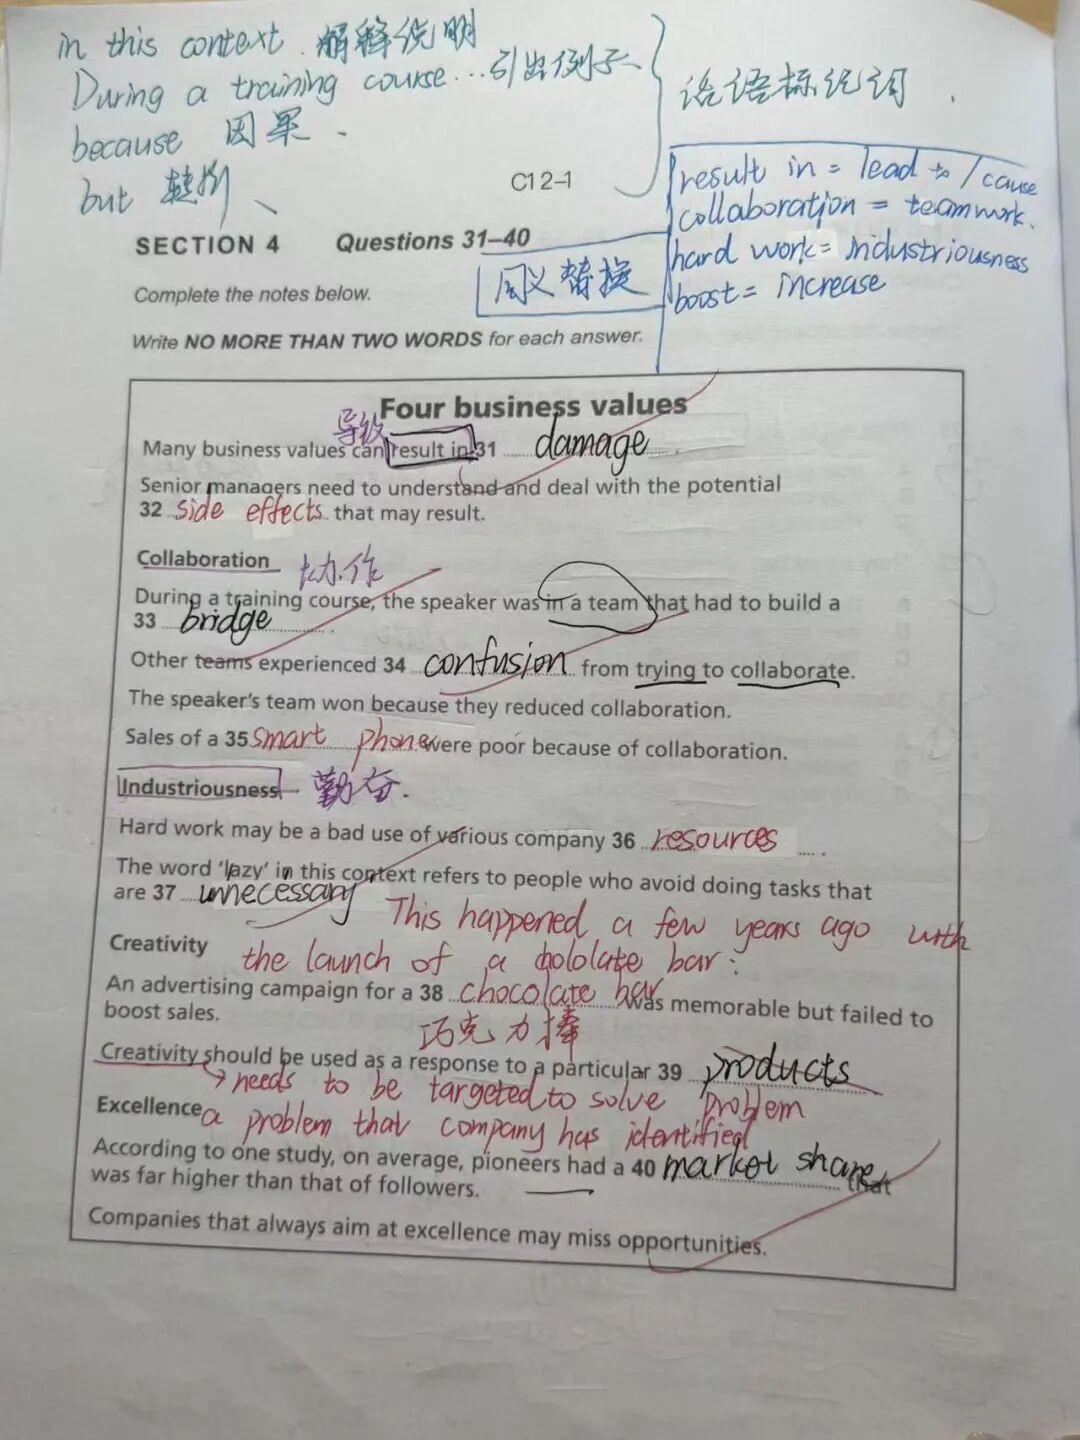 in this context 解释说明
During a training course... 引出例子
because 因果.
but 转折、
话语标记词
C12-1
result in = lead to / cause
collaboration = teamwork.
hard work = industriousness
boost = increase
同义替换
SECTION 4 Questions 31–40
Complete the notes below.
Write NO MORE THAN TWO WORDS for each answer.
Four business values
导致
Many business values can result in 31 damage
Senior managers need to understand and deal with the potential
32 side effects that may result.
Collaboration 协作
During a training course, the speaker was in a team that had to build a
33 bridge .
Other teams experienced 34 confusion from trying to collaborate.
The speaker's team won because they reduced collaboration.
Sales of a 35 smart phone were poor because of collaboration.
Industriousness 勤奋.
Hard work may be a bad use of various company 36 resources .
The word 'lazy' in this context refers to people who avoid doing tasks that
are 37 unnecessary
This happened a few years ago with
Creativity the launch of a chololate bar:
An advertising campaign for a 38 chocolate bar was memorable but failed to
boost sales.
巧克力棒
Creativity should be used as a response to a particular 39 products
needs to be targeted to solve problem
Excellence a problem that company has identified
According to one study, on average, pioneers had a 40 market share that
was far higher than that of followers.
Companies that always aim at excellence may miss opportunities.